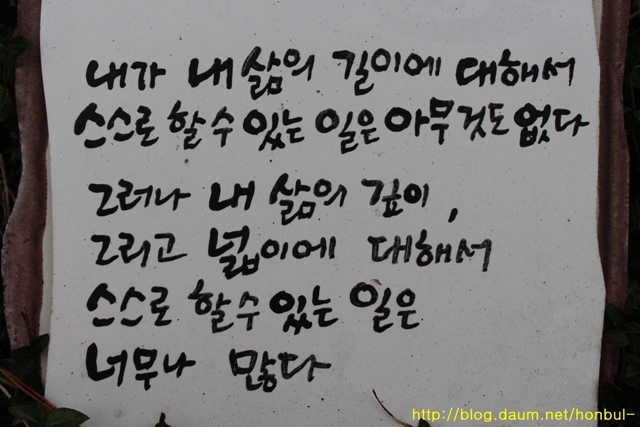 내가 내 삶의 길이에 대해서
스스로 할 수 있는 일은 아무것도 없다
그러나 내 삶의 깊이,
그리고 넓이에 대해서
스스로 할 수 있는 일은
너무나 많다
http://blog.daum.net/honbul-